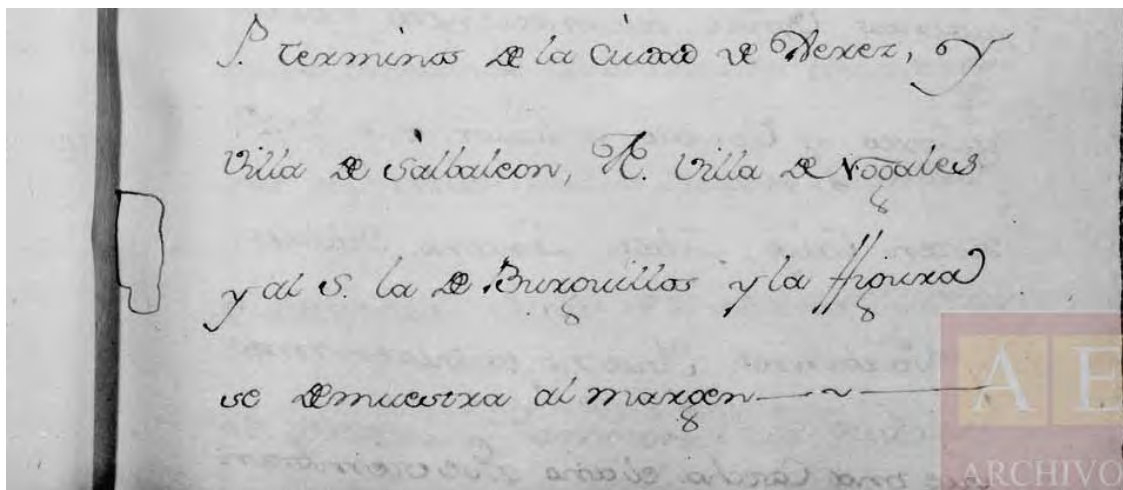 P. terminos de la Ciudad de Xerez, y
Villa de Salbaleon, N. Villa de Nogales
y al S. la de Burguillos y la figura
se demuestra al margen
A E
ARCHIVO